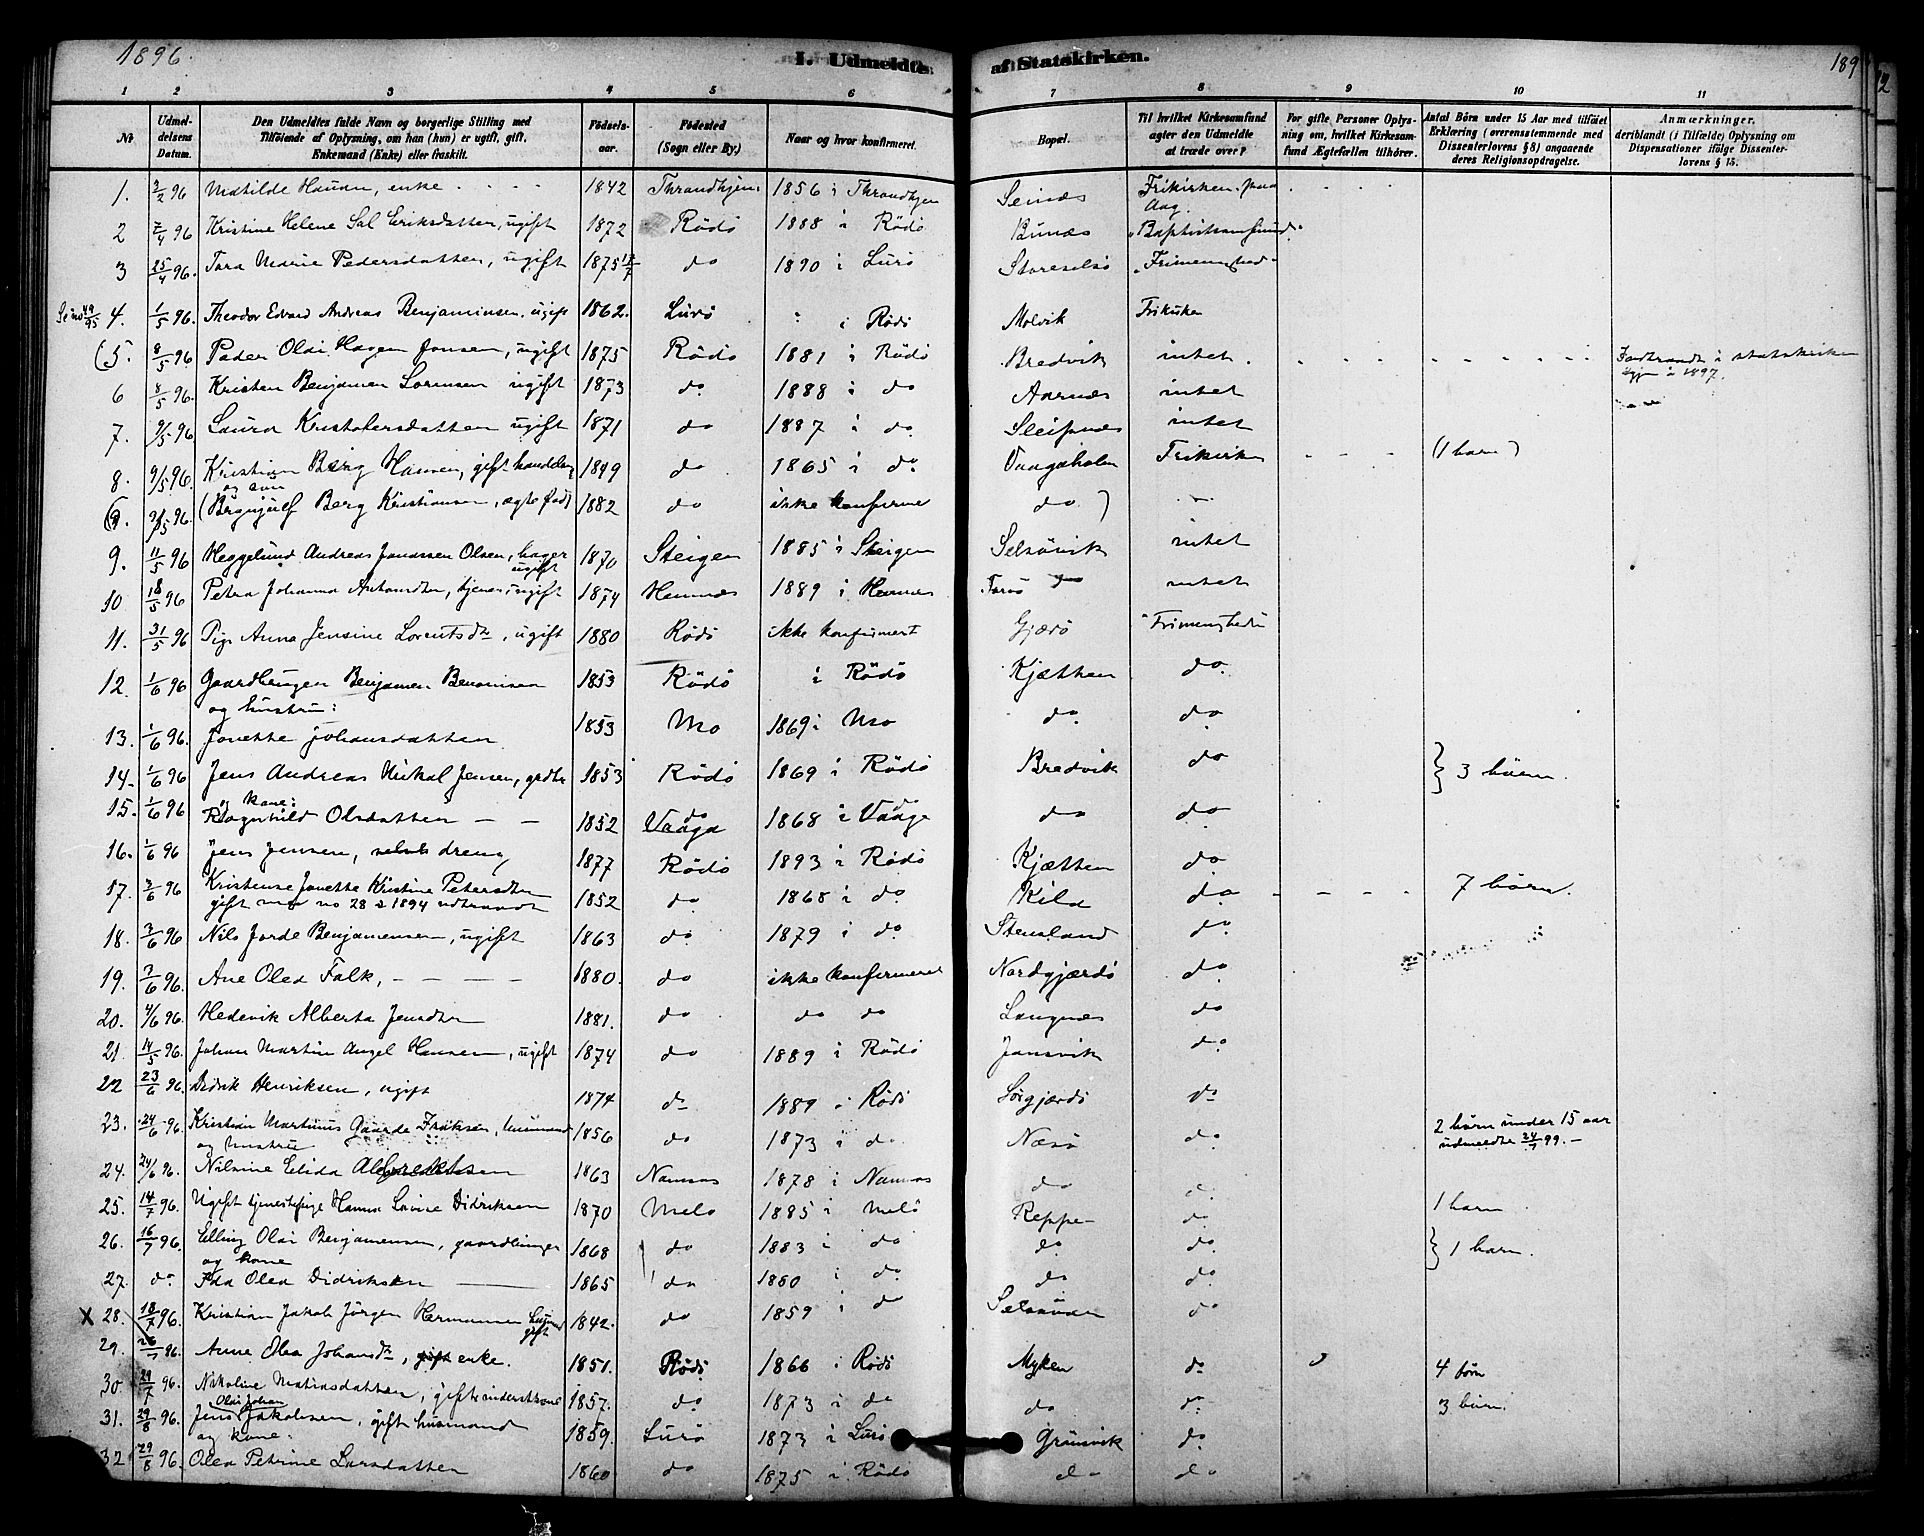 1896.
I. Udmeldte
af Statskirken.
189
1 2 3 4 5 6 7 8 9 10 11
No
Udmeldelsens Datum.
Den Udmeldtes fulde Navn og borgerlige Stilling med
Tilföiende af Oplysning, om han (hun) er ugift, gift,
Enkemand (Enke) eller fraskilt.
Födselsaar.
Födested
(Sogn eller By.)
Naar og hvor konfirmeret.
Bopæl.
Til hvilket Kirkesamfund
agter den Udmeldte
at træde over?
For gifte Personer Oplysning om, hvilket Kirkesamfund Ægtefællen tilhörer.
Antal Börn under 15 Aar med tilföiet
Erklæring (overensstemmende med
Dissenterlovens § 8) angaaende
deres Religionsopdragelse.
Anmærkninger,
deriblandt (i Tilfælde) Oplysning om
Dispensationer ifölge Dissenterlovens § 15.
1. 2/2 96 Matilde Hauan, enke 1842 Thrandhjem 1856 i Thrandhjem Seines Frikirken paa
Aag.
2 7/4 96 Kristine Helene Sal Eriksdatter, ugift 1872 Rödö 1888 i Rödö Bunæs "Baptistsamfund"
3 25/4 96. Tara Marie Pedersdatter, ugift 1875 do 1890 i Lurö Storeselsö "Frimenighed"
4. 1/5 96. Theodor Edvard Andreas Benjaminsen, ugift 1862. Lurö i Rödö Molvik Frikirken
(5. 8/5 96 Peder Olai Hagen Jensen, ugift 1875 Rödö 1881 i Rödö Bredvik intet. statskirken
igjen i 1897.
6 8/5 96. Kristen Benjamin Sorensen ugift 1873 do 1888 i do Aarnæs intet
7. 9/5 96 Laura Kristofersdatter ugift 1871 do 1887 i do. Sleipnæs intet
8. 9/5 96. Kristian Berg Hansen, gift handelsm 1849 do 1865 i do. Vaagaholm Frikirken (1 barn)
og søn
(9. 9/5 96. (Brynjulf Berg Kristiansen, ægte fød) 1882 do ikke konfirme do.)
9. 11/5 96 Heggelund Andreas Jonassen Olsen, bager 1870 Steigen 1885 i Steigen Selsövik intet
ugift
10 18/5 96 Petra Johanna Antonsdtr, tjener, ugift 1874 Hemnæs 1889 i Hemnæs intet
11. 31/5 96 Pige Anna Jensine Lorentsdtr, ugift 1880 Rödö ikke konfirmert Gjærö "Frimenigheden
12. 1/6 96 Gaardbruger Benjamin Benoninsen 1853 Rödö i Rödö Kjætten do.
og hustru:
13. 1/6 96. Jonette Johansdatter 1853 Mo 1869 i Mo do. do.
14. 1/6 96 Jens Andreas Nikal Jensen, grdbr 1853 Rödö 1869 i Rödö Bredvik do } 3 börn.
15. 1/6 96 og kone:
Ragnhild Olsdatter — — 1852 Vaage 1868 i Vaage do do
16. 1/6 96 Jens Jensen, dreng 1877 Rödö 1893 i Rödö Kjætten do.
17. 3/6 96 Kristense Jonette Kristine Petersdtr 1852 do. 1868 i do. Kila do 7 börn.
gift med no 28 i 1894 udtraadt
18. 3/6 96 Nils Jorde Benjaminsen, ugift 1863 do. 1879 i do. Stensland do.
19. 3/6 96. Ane Olea Falk, — — — 1880. do ikke konfirmeret Nordgjærdö do
20. 4/6 96. Hedevik Alberta Jensdtr 1881. do do do Langnæs do
21. 14/5 96. Johan Martin Angel Hansen, ugift 1874 do 1889 i Rödö Jansvik do.
22 23/6 96. Didrik Henriksen, ugift 1874 do 1889 i Rödö Sörgjærdö do
23. 24/6 96 Kristian Martinus Gaarde Eriksen, husmand 1856 do 1873 i do Næsö do 2 börn under 15 aar
og hustru udmeldte 24/7 99.—
24. 24/6 96. Nilsine Elida Albrektsen 1863 Namsos 1878 i Namsos do
25. 14/7 96. Ugift tjenestepige Hanna Lovise Didriksen 1870 Melö 1885 i Melö Reppe do 1 barn.
26. 16/7 96. Elling Olai Benjaminsen, gaardbruger 1868 do 1883 i do do. do. } 1 barn.
og kone
27. do. Ida Olea Didriksen 1865 do 1880 i do. do do.
X 28. 18/7 96. Kristian Jakob Jörgen Hermansen gift 1842. do 1859 i do do
29. 26/7 96. Anne Olea Johansdtr, gift enke. 1851. Rödö 1866 i Rödö Myken do 4 börn
30. 29/7 96. Nikoline Matiasdatter, gift inderstkone 1857. do. 1873 i do do do. 3 börn.
31. 29/8 96. Jens Olai Johan Jakobsen, gift husmand 1859. Lurö 1873 i Lurö Grönsvik do.
og kone:
32 29/8 96. Olea Petrine Larsdatter 1860 do 1875 i Rödö do do.